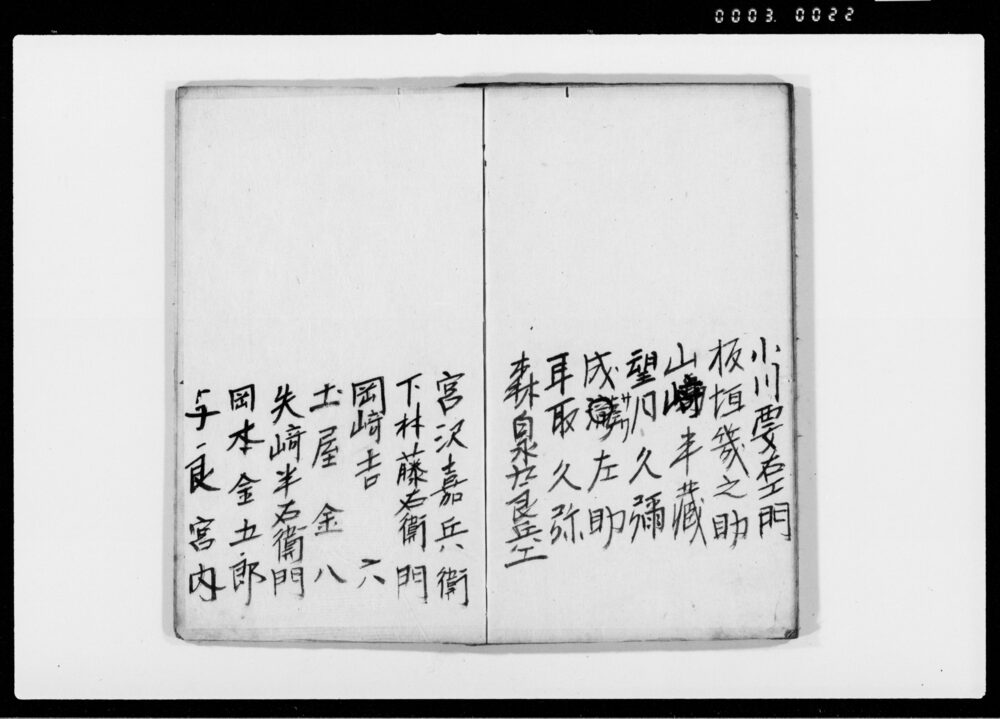 0003.0022
小川要左エ門
板垣幾之助
山﨑半藏
望月久彌
成 左助
耳取久弥
森泉 良兵エ
宮沢嘉兵衛
下林藤右衛門
岡﨑吉六
土屋金八
矢﨑半右衛門
岡本金五郎
与良宮内